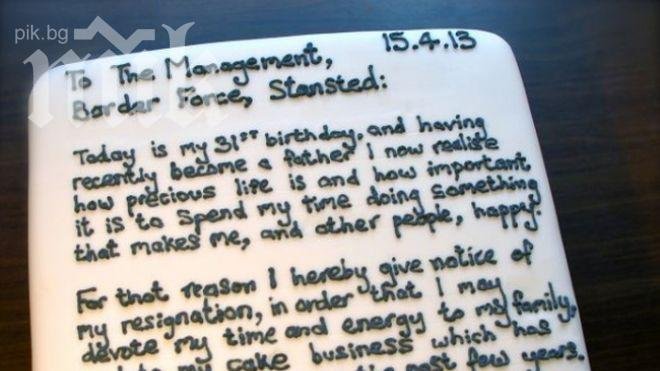 pik.bg
15.4.13
To The Management,
Border Force, Stansted:
Today is my 31ST birthday, and having
recently become a father I now realise
how precious life is and how important
it is to spend my time doing something
that makes me, and other people, happy.
For that reason I hereby give notice of
my resignation, in order that I may
devote my time and energy to my family,
my cake business which has
the past few years.